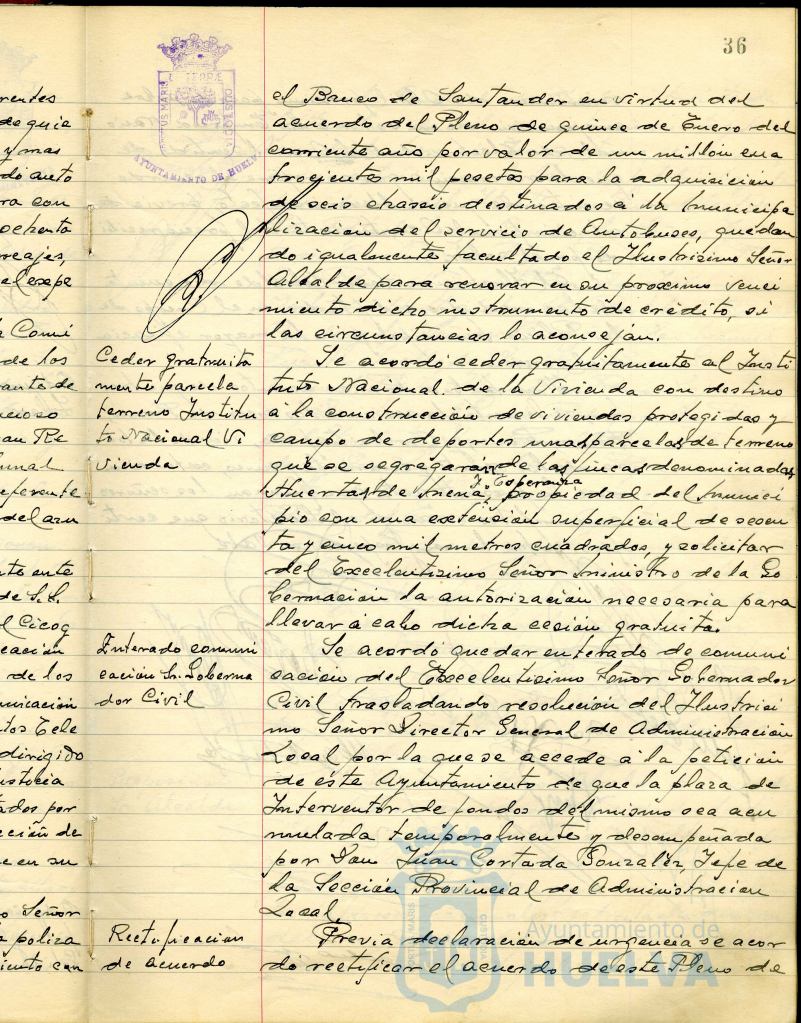 36
rentes
de quie
y mas
do auto
ra con
ochenta
reajes,
el expe
Comi
de los
rante de
ncioso
an Re
unal
referente
del acu
nto ente
de S.S.
l Cicog
cación
de los
unicación
tos Tele
dirigido
usticia
ados por
cción de
e en su
o Señor
a poliza
iento con
PORTUS MARIS ET TERRÆ CUSTODIA
AYUNTAMIENTO DE HUELVA
el Banco de Santander en virtud del
acuerdo del Pleno de quince de Enero del
corriente año por valor de un millón cua
trocientas mil pesetas para la adquisición
de seis chasis destinados a la municipa
lización del servicio de Autobuses, quedan
do igualmente facultado el Ilustrisimo Señor
Alcalde para renovar en su proximo venci
miento dicho instrumento de crédito, si
las circunstancias lo aconsejan.
Ceder gratuita
mente parcela
terreno Institu
to Nacional Vi
vienda
Se acordó ceder gratuitamente al Insti
tuto Nacional de la Vivienda con destino
a la construcción de viviendas protegidas y
campo de deportes unas parcelas de terreno
que se segregarán de las fincas denominadas
Huertas de Mena, y Esperanza propiedad del Munici
pio con una extensión superficial de sesen
ta y cinco mil metros cuadrados, y solicitar
del Excelentisimo Señor Ministro de la Go
bernación la autorización necesaria para
llevar á cabo dicha cesión gratuita.
Enterado comuni
cación Sr. Goberna
dor Civil
Se acordó quedar enterado de comuni
cación del Excelentisimo Señor Gobernador
Civil trasladando resolución del Ilustrisi
mo Señor Director General de Administración
Local por la que se accede a la petición
de éste Ayuntamiento de que la plaza de
Interventor de fondos del mismo sea acu
mulada temporalmente y desempeñada
por Don Juan Cortada Gonzalez, Jefe de
la Sección Provincial de Administracion
Local.
Rectificacion
de acuerdo
Previa declaración de urgencia se acor
dó rectificar el acuerdo de este Pleno de
Ayuntamiento de
HUELVA